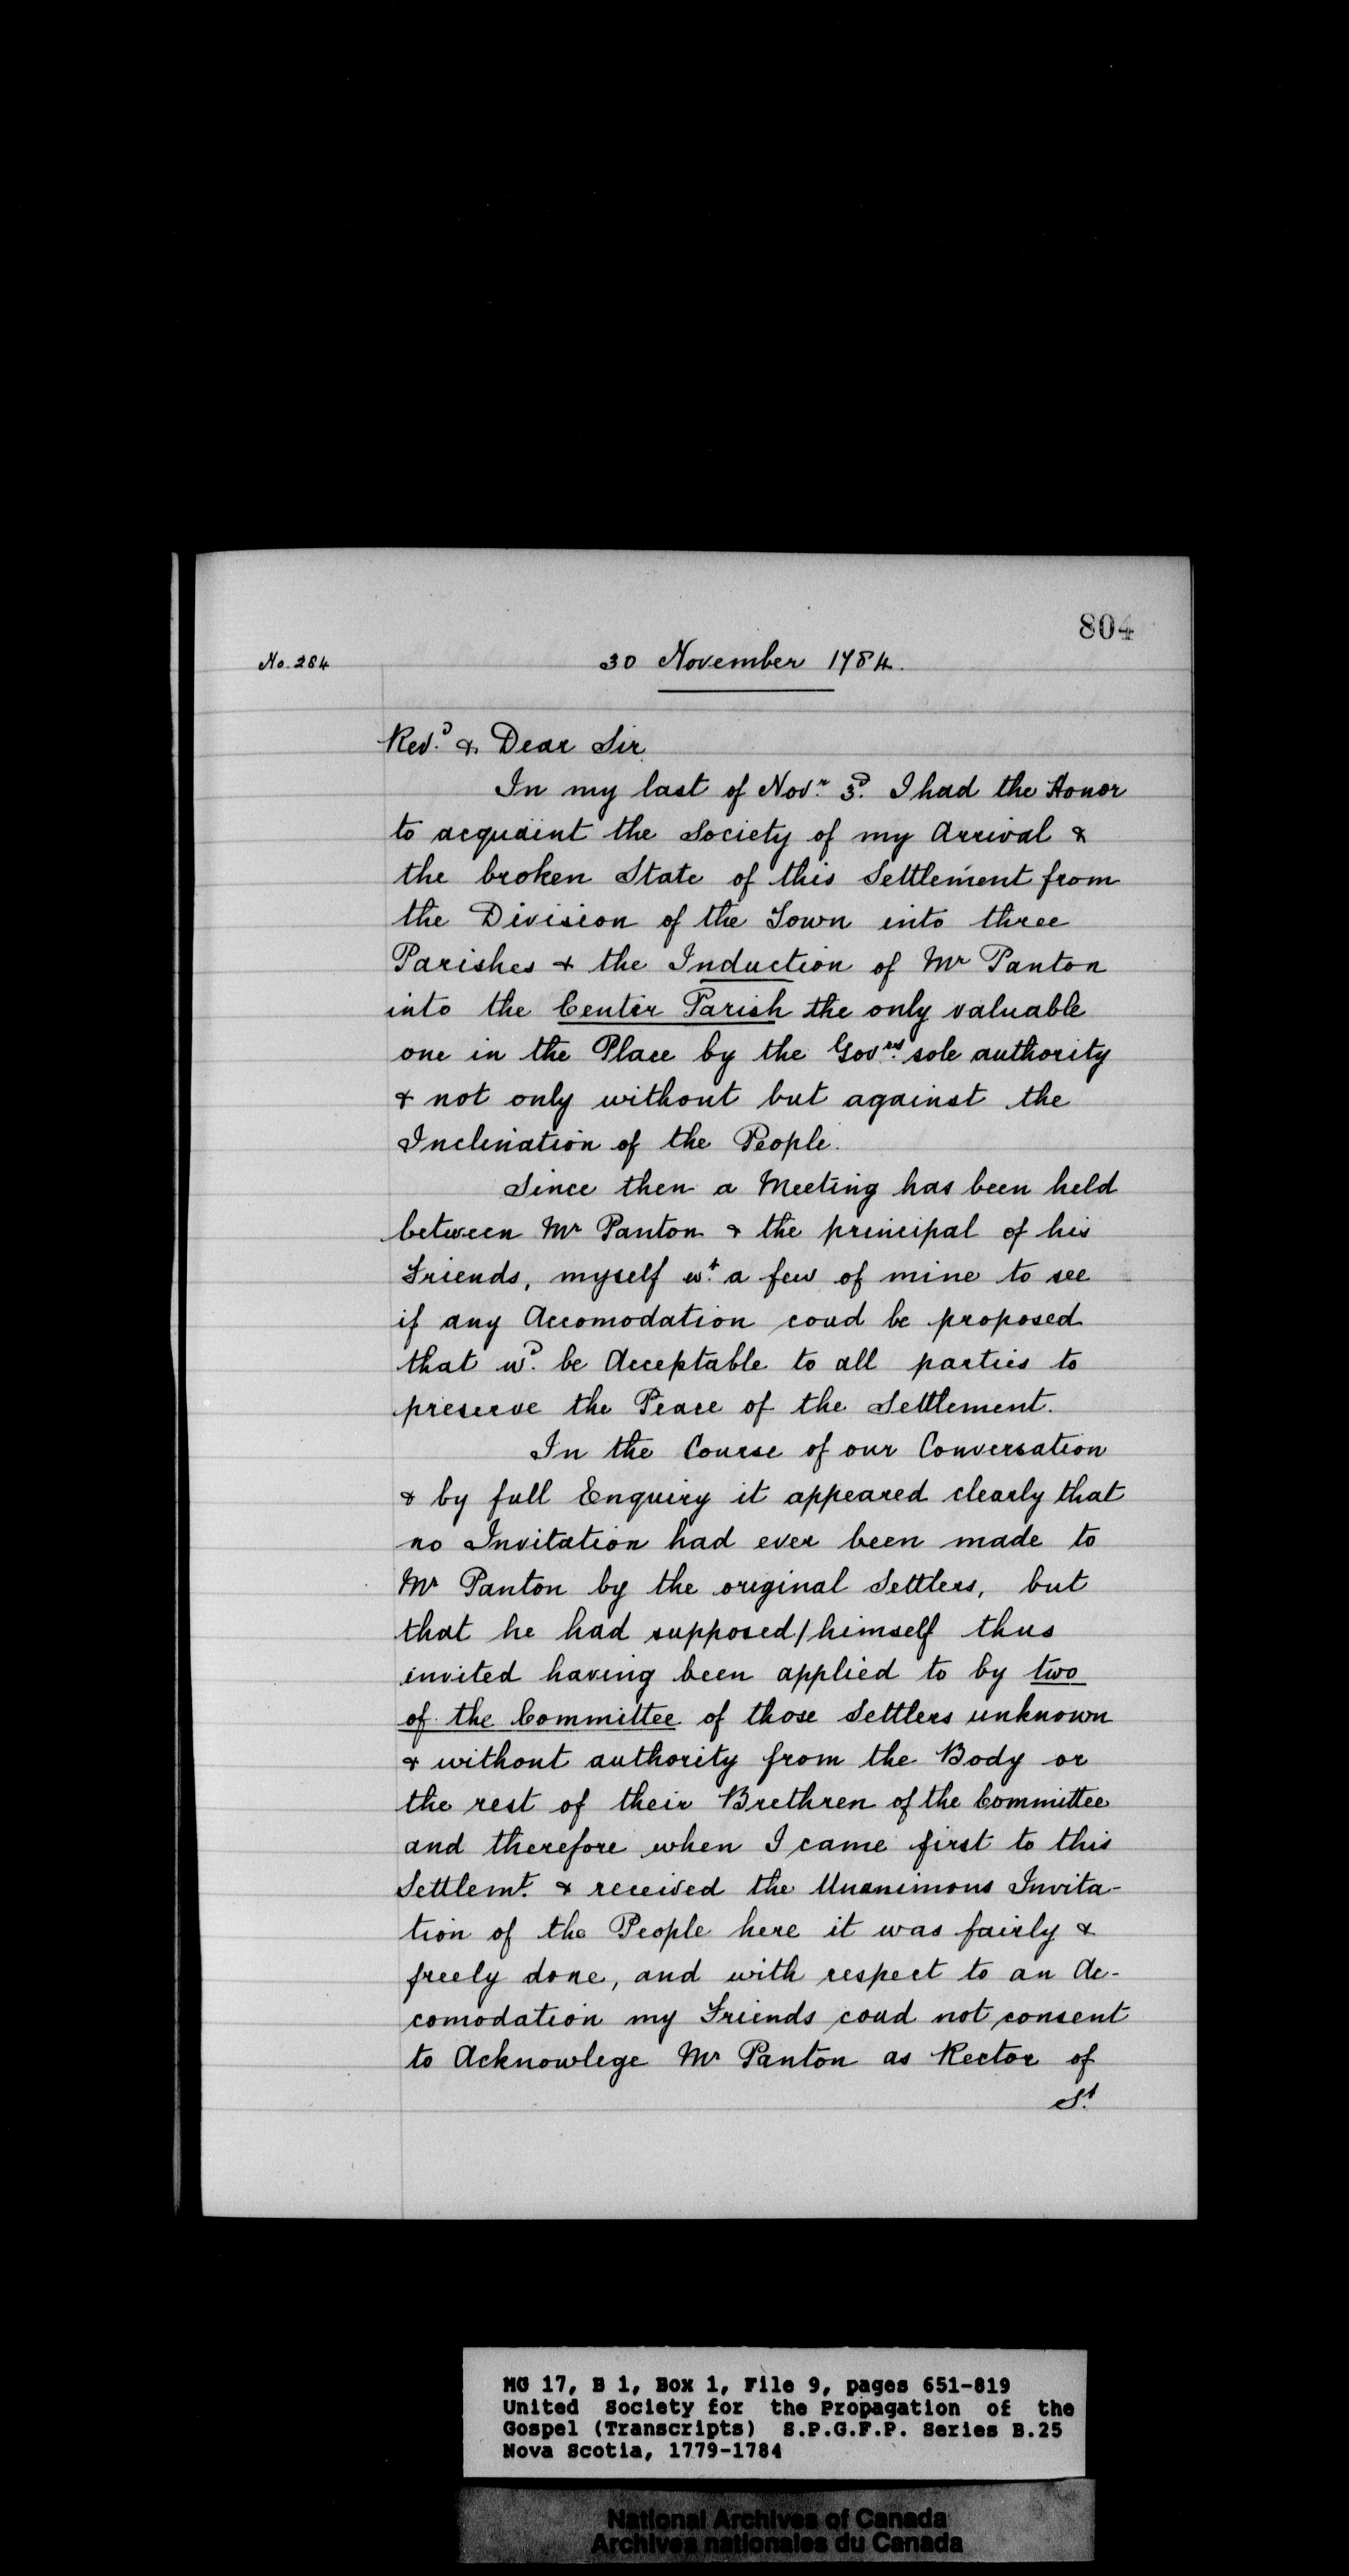 804
No. 284
30 November 1784.
Revd. & Dear Sir
In my last of Novr. 3d. I had the Honor
to acquaint the Society of my Arrival &
the broken State of this Settlement from
the Division of the Town into three
Parishes & the Induction of Mr Panton
into the Center Parish the only valuable
one in the Place by the Govrs. sole authority
& not only without but against the
Inclination of the People.
Since then a Meeting has been held
between Mr Panton & the principal of his
Friends, myself wt. a few of mine to see
if any Accomodation coud be proposed
that wd. be Acceptable to all parties to
preserve the Peace of the Settlement.
In the Course of our Conversation
& by full Enquiry it appeared clearly that
no Invitation had ever been made to
Mr Panton by the original Settlers, but
that he had supposed/himself thus
invited having been applied to by two
of the Committee of those Settlers unknown
& without authority from the Body or
the rest of their Brethren of the Committee
and therefore when I came first to this
Settlemt. & received the Unanimous Invita-
tion of the People here it was fairly &
freely done, and with respect to an Ac-
comodation my Friends coud not consent
to Acknowlege Mr Panton as Rector of
St.
MG 17, B 1, Box 1, File 9, pages 651-819
United Society for the Propagation of the
Gospel (Transcripts) S.P.G.F.P. Series B.25
Nova Scotia, 1779-1784
National Archives of Canada
Archives nationales du Canada